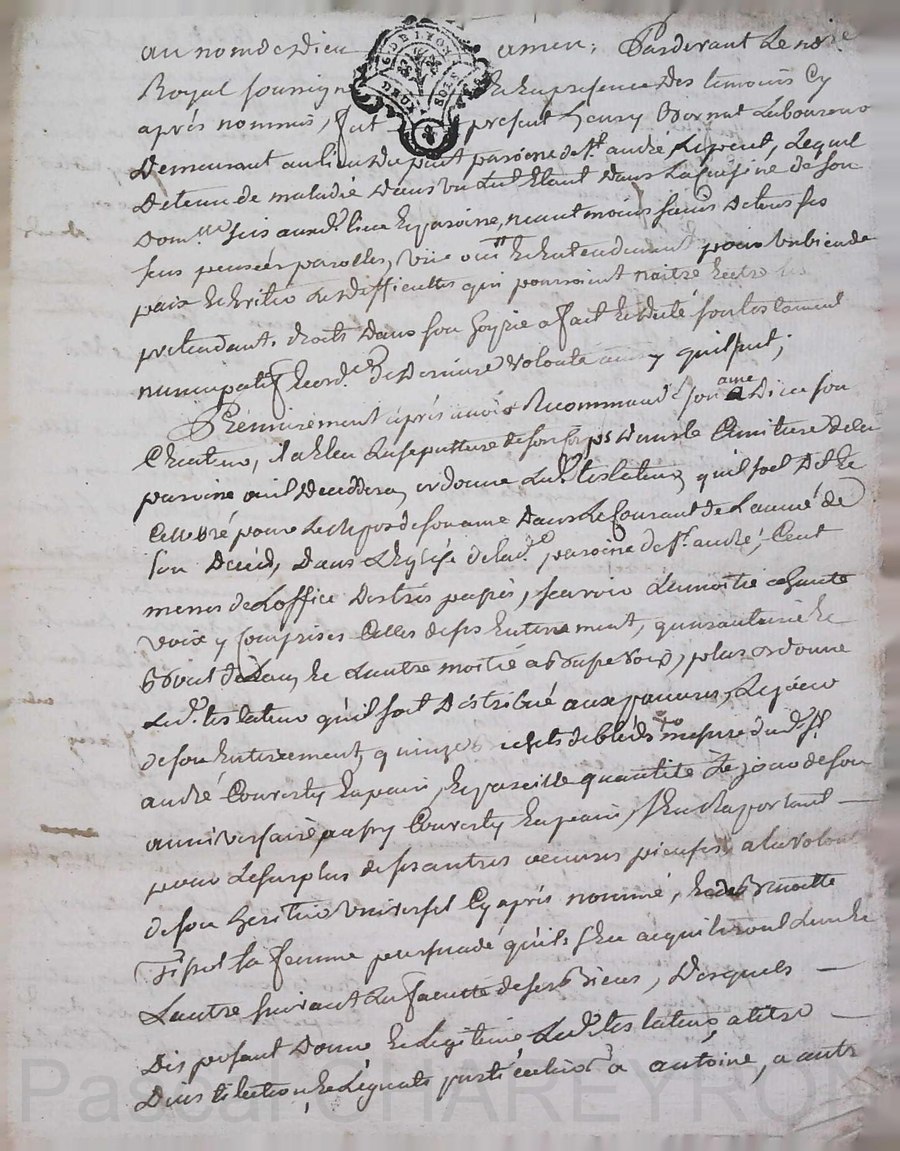 au nom de dieu amen; Pardevant Le no.re
Royal soussigné Et En presence des temoins Cy
aprés nommés, fut present henry Bornat Laboureur
Demeurant au lieu du pont paroine de st. andré, Lequel
Detenu de maladie Dans un Lit Etant dans La Cuisine de son
Dom.lle sis aux d. lieu Et paroine, neant moins sain De tous ses
sens pensées parolles, vüe ouïe Et Entendement pour un bien de
paix Et Eviter Les difficultes qui pourroint naitre Entre les
pretendant droits Dans son hoyrie a fait Et Dicté son testament
nuncupatif Et ord.ce De Derniere volonté ainsy quil suit;
Prémierement aprés avoir Recommandé son ame a Dieu son
Createur, il a Eleu La sepulture de son Corps Dans le Cimitiere de la
paroine ou il Decedera, ordonne Led. testateur, quil soit De Ete
Cellebré pour Le Repos de son ame Dans Le Courant de L'année de
son Decéd, dans L'Eglise de lad.e paroine de st. andré, Cent
messes de L'office Des tres passés, scavoir La moitié a haute
voix y Comprises Celles de ses Enterrement, quarantaine Et
Bout de L'an, Et L'autre moitié a Basse voix, plus ordonne
Led. testateur qu'il soit Distribué aux pauvres, Le jour
de son Enterrement, quinze cestes de bled mesure dud. st.
andré Converty En pain, Et pareille quantité Le jour de son
anniversaire aussy Converty En pain, s'En Raportant
pour Le surplus de ses autres oeuvres pieuses, a la volonté
de son heritier universel Cy aprés nommé, Et de Benoitte
sa femme persuadé qu'ils s'En aquiteront L'un Et
L'autre suivant La faculté de ses Biens, Desquels
Disposant Donne Et Legue Led. testateur, a titre
D'institution, Et Léguat particulier a antoine, a autre
Pascal CHAREYRON